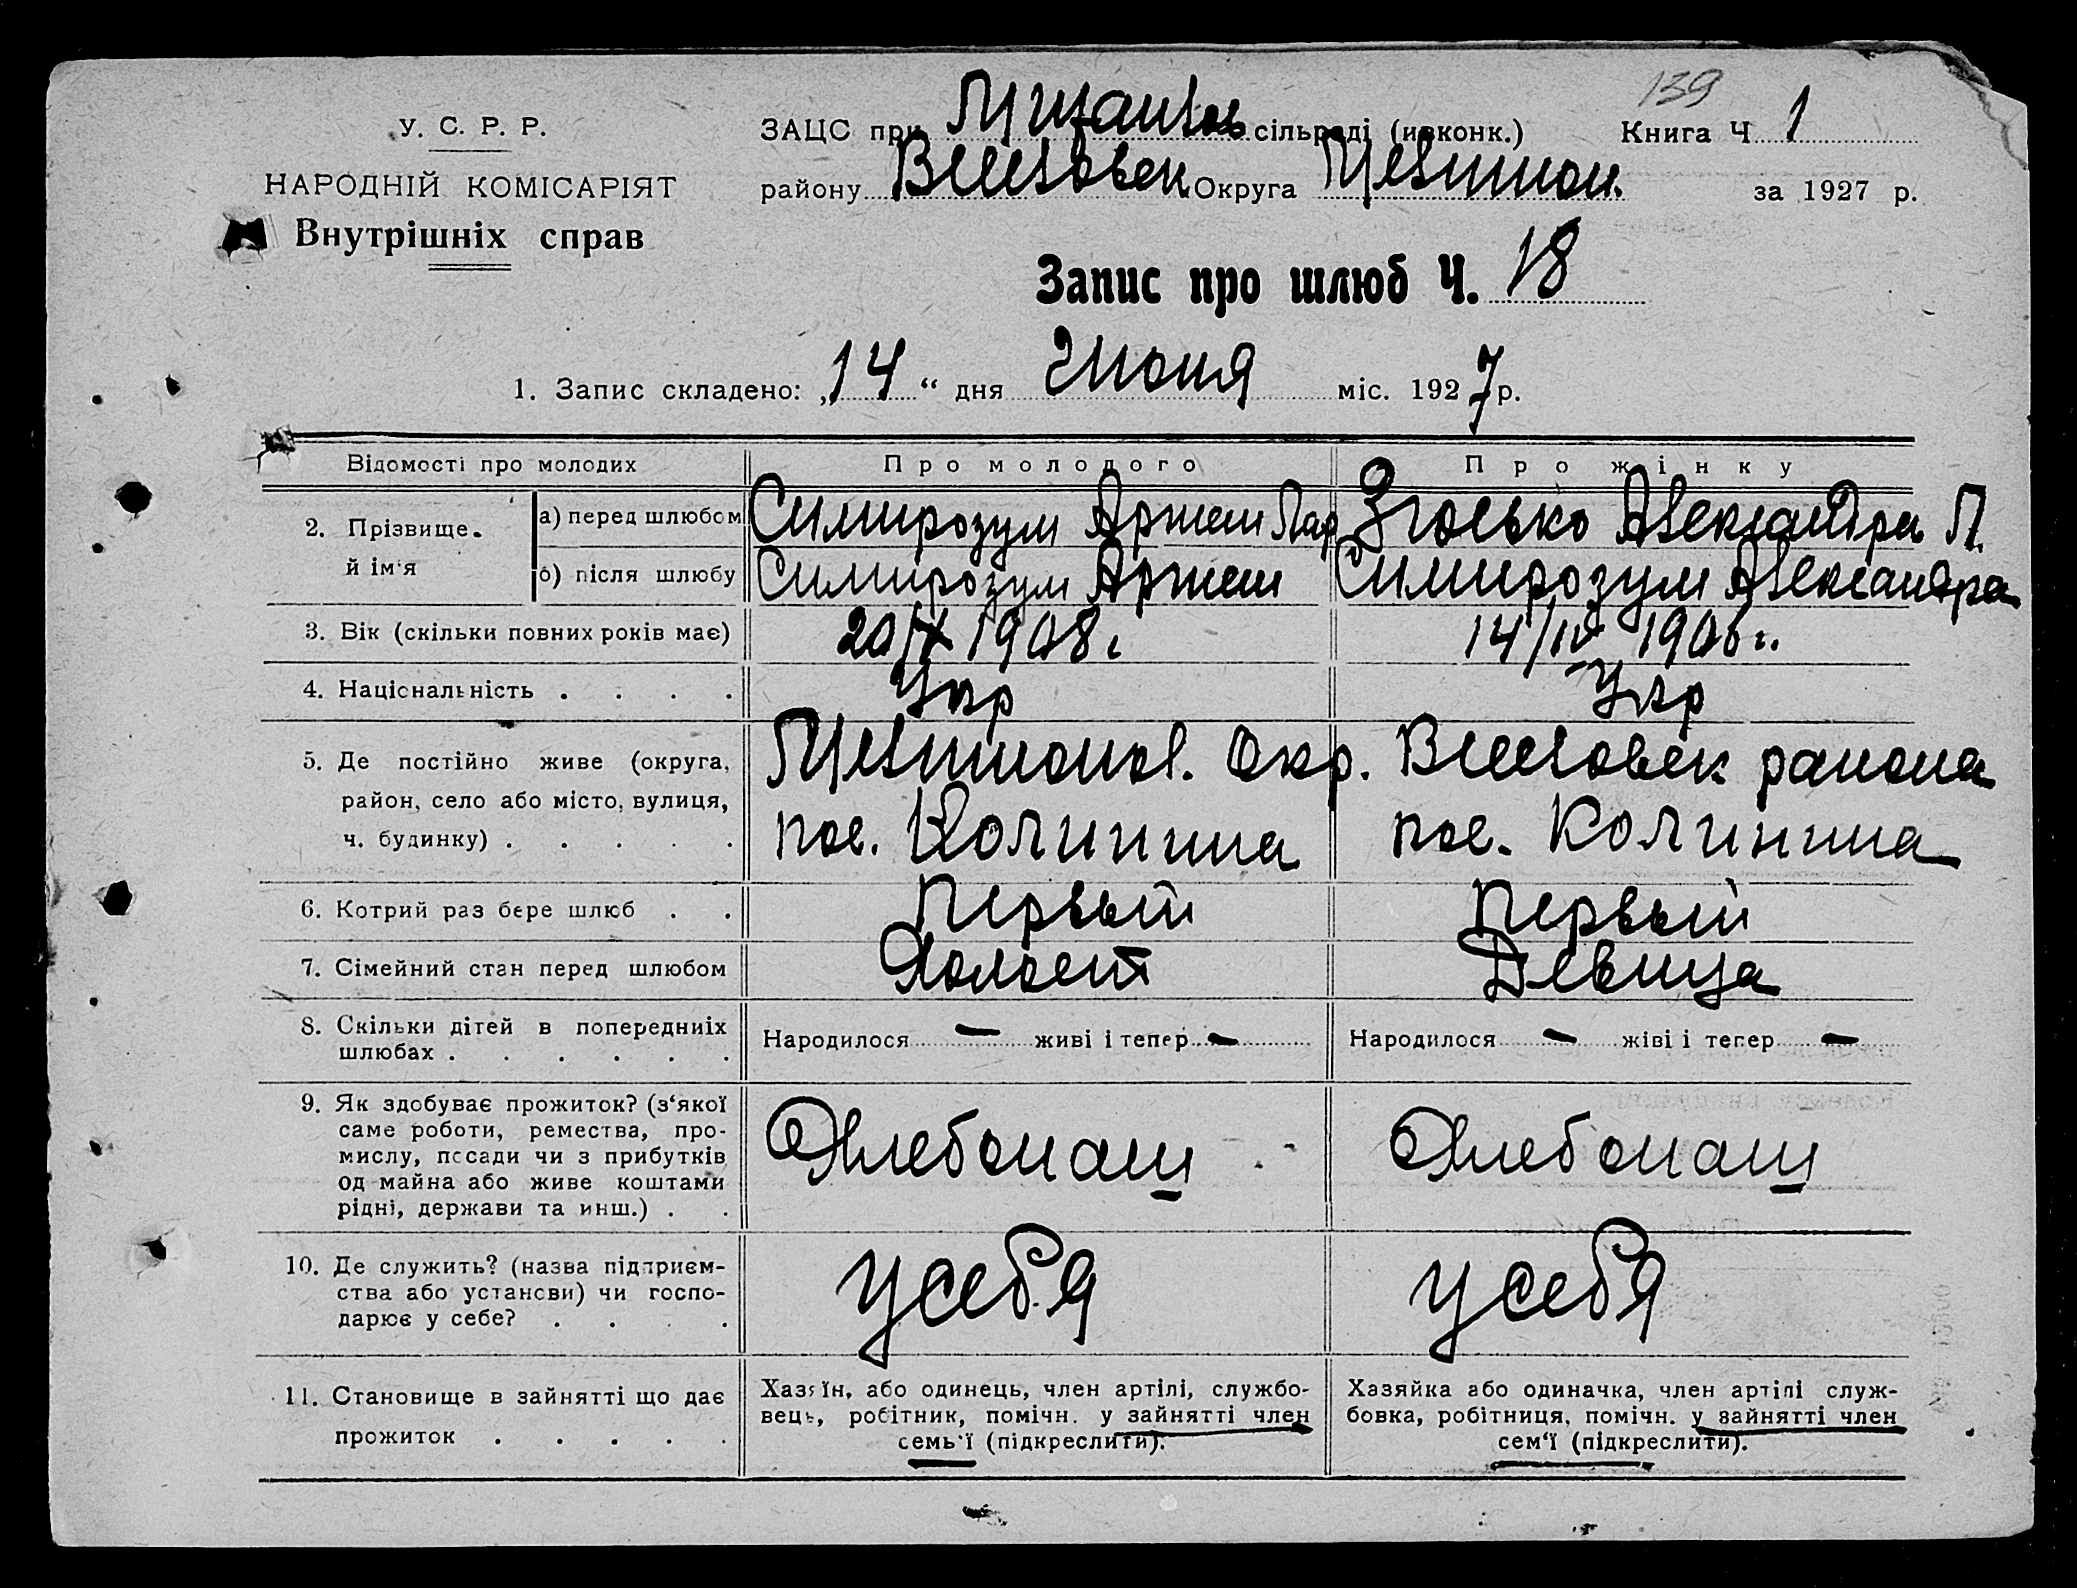 139
У. С. Р. Р.
НАРОДНІЙ КОМІСАРІЯТ
Внутрішніх справ
ЗАЦС при сільраді (исконк.) Книга Ч 1
району Веселовск Округа Мелитоп. за 1927 р.
Запис про шлюб Ч. 18
1. Запис складено: „14“ дня Июня міс. 1927 р.
Відомості про молодих Про молодого Про жінку
2. Прізвище й ім'я
а) перед шлюбом Симирозум Артем Лар Александра П.
б) після шлюбу Симирозум Артем Симирозум Александра
3. Вік (скільки повних років має) 20/X 1908 г. 14/IV 1906 г.
4. Національність . . . . Укр Укр
5. Де постійно живе (округа, район, село або місто, вулиця, ч. будинку) . . . . .
Мелитопол. Окр. Веселовск района
пос. Колинина пос. Колинина
6. Котрий раз бере шлюб . . Первый Первый
7. Сімейний стан перед шлюбом Холост Девица
8. Скільки дітей в попередниіх шлюбах . . . . . .
Народилося — живі і тепер — Народилося — жіві і тепер —
9. Як здобуває прожиток? (з'якої
саме роботи, ремества, про-
мислу, посади чи з прибутків
од майна або живе коштами
рідні, держави та инш.) . .
Хлебопаш Хлебопаш
10. Де служить? (назва підприєм-
ства або установи) чи госпо-
дарює у себе? . . . .
у себя у себя
11. Становище в зайнятті що дає
прожиток . . . . .
Хазяїн, або одинець, член артілі, службо-
вець, робітник, помічн. у зайнятті член
семь'ї (підкреслити).
Хазяйка або одиначка, член артілі служ-
бовка, робітниця, помічн. у зайнятті член
сем'ї (підкреслити).